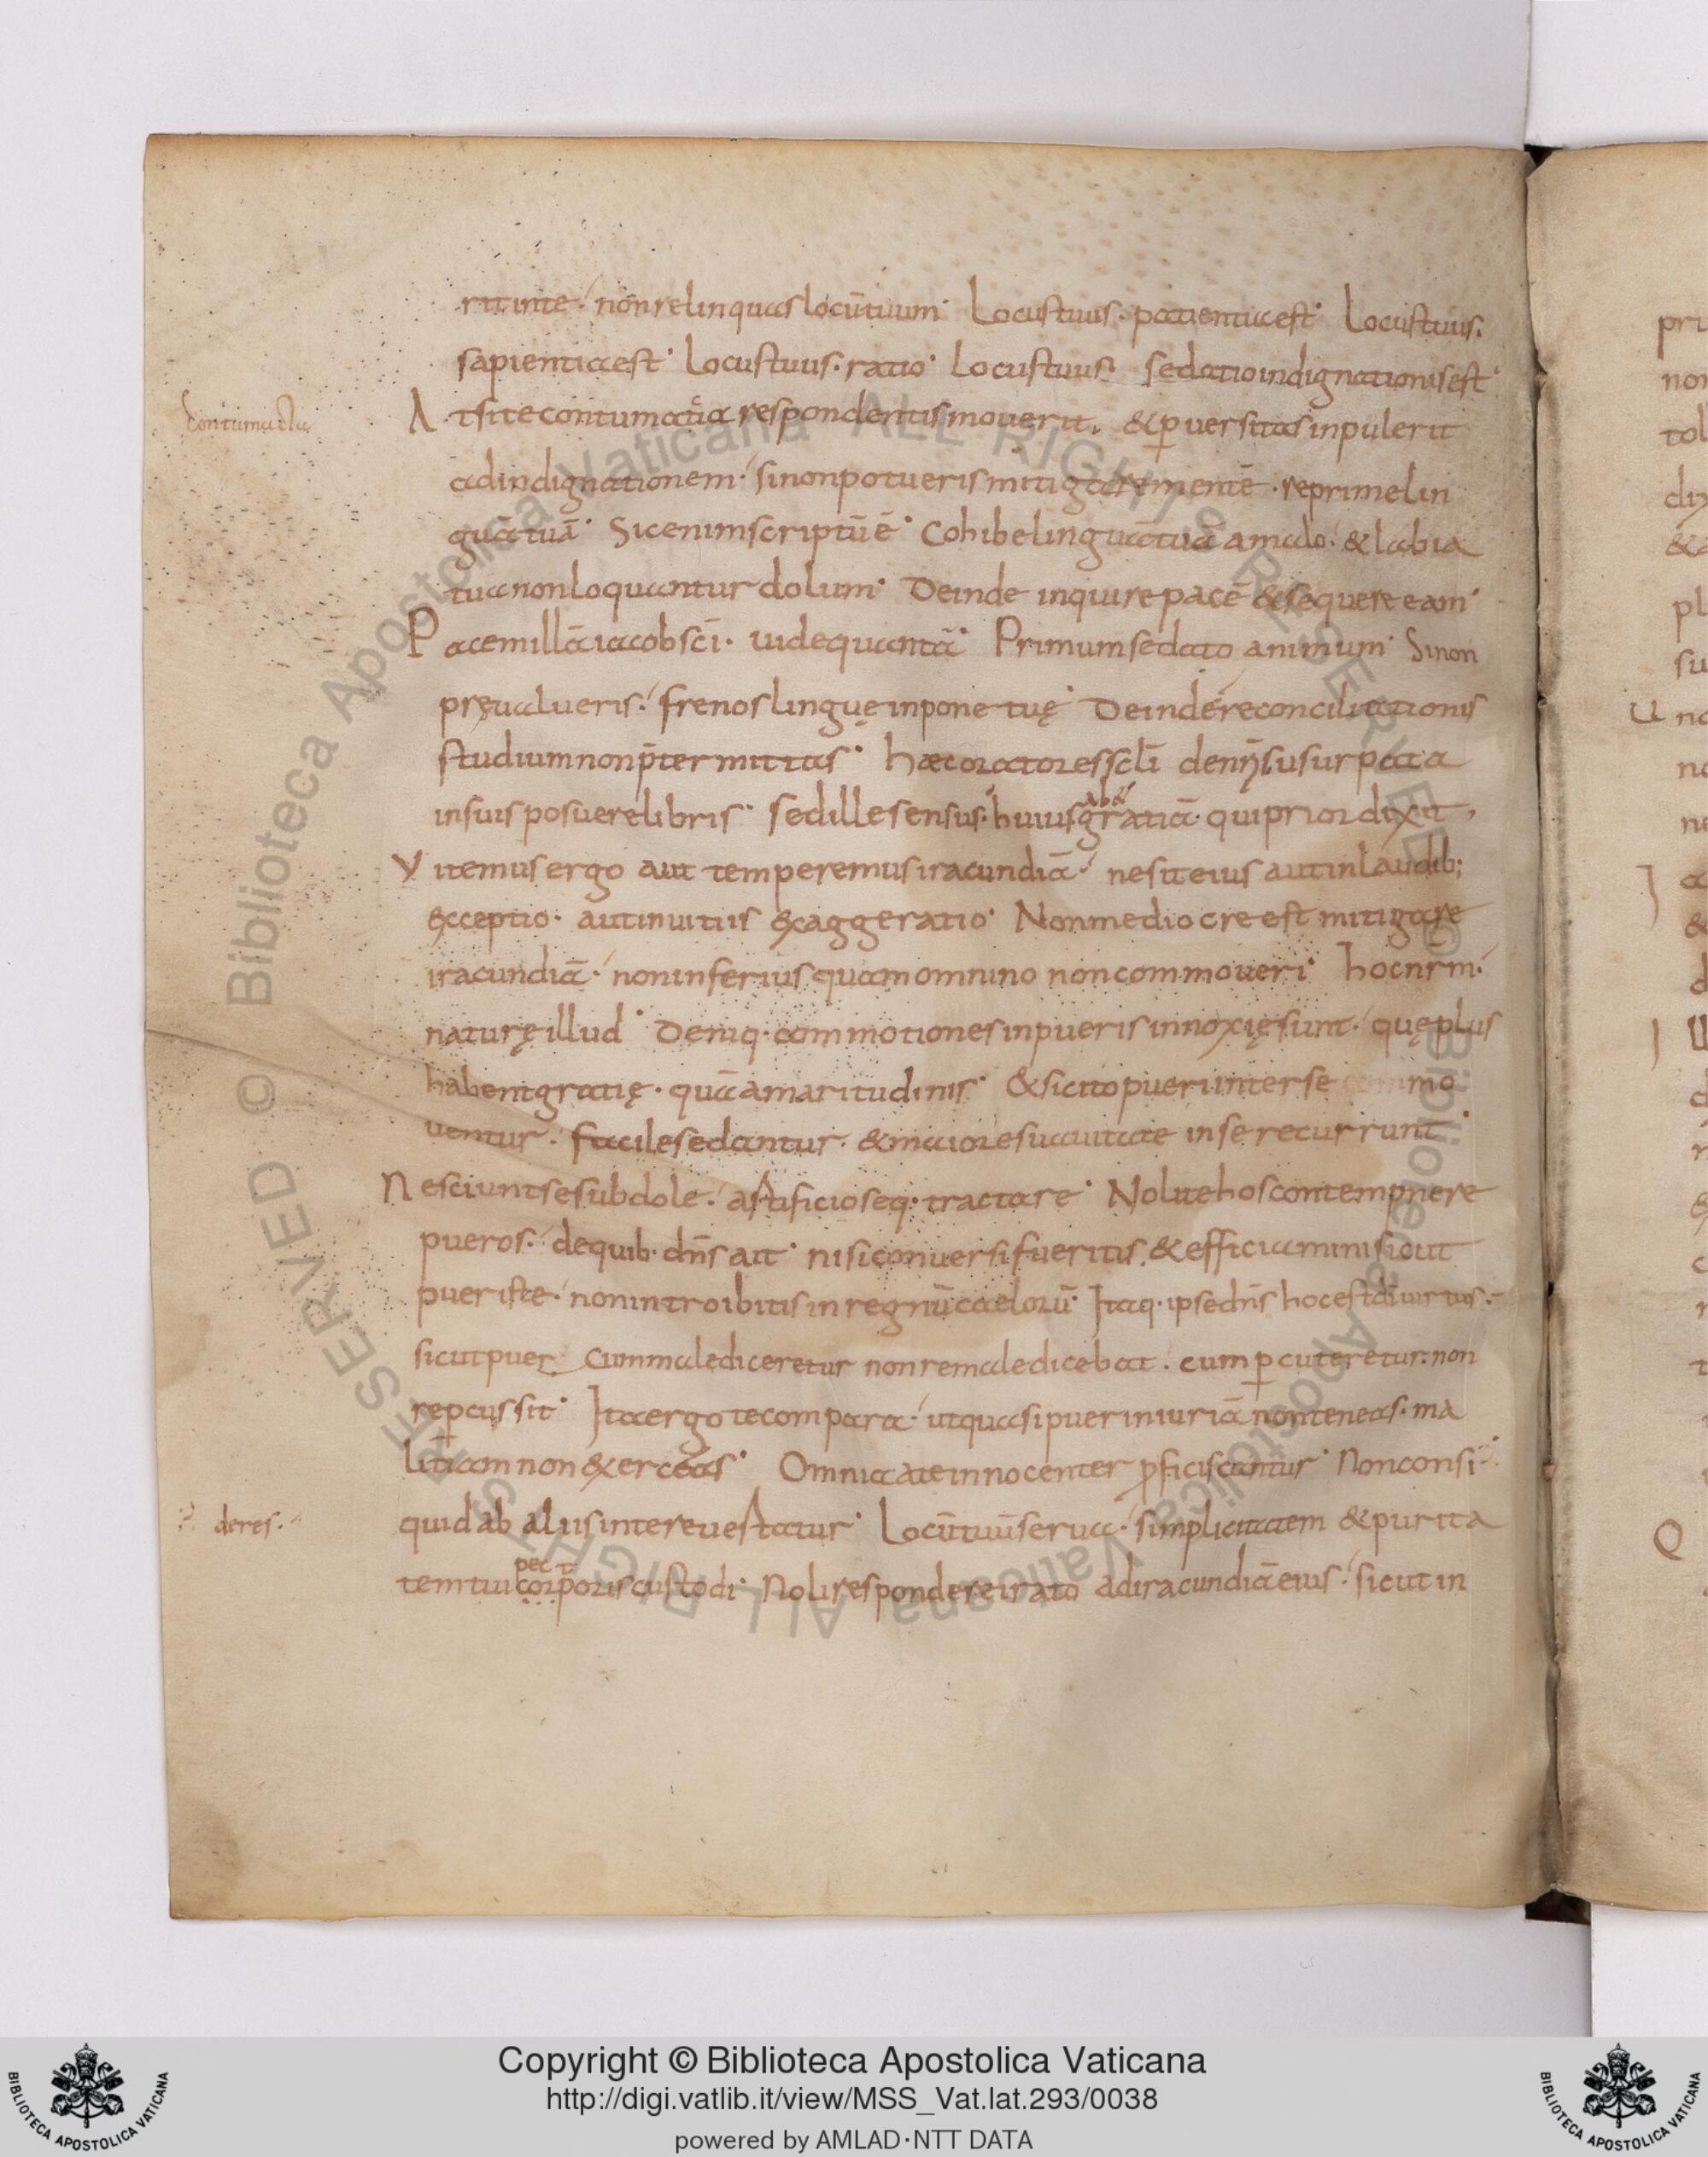 rit in te · non relinquas locū tuum · Locus tuus · patientia est · Locus tuus ·
sapientia est · Locus tuus · ratio · Locus tuus · sedatio indignationis est ·
contumacia
At si te contumatia respondentis mouerit, & ꝑuersitas inpulerit
ad indignationem · si non potueris mitigare mentē · reprime lin
guā tuā · Sic enim scriptū ē · Cohibe linguā tuā a malo · & labia
tua non loquantur dolum · Deinde inquire pacē & sequere eam ·
Pacem illā iacob sc̄i · uide quantā · Primum sedato animum · Si non
pręualueris · frenos linguę inpone tuę · Deinde reconciliationis
studium non p̄termittas · haec oratores sc̄li de nr̄is usurpata
in suis posuere libris · sed ille sensus · huius habet gratiā · qui prior dixit ·
Vitemus ergo aut temperemus iracundiā · ne sit eius aut in laudib;
exceptio · aut in uitiis exaggeratio · Non mediocre est mitigare
iracundiā · non inferius quam omnino non commoueri · hoc nr̄m ·
naturę illud · Deniq· commotiones in pueris innoxię sunt · quę plus
habent gratię · quā amaritudinis · & si cito pueri inter se commo
uentur · facile sedantur · & maiore suauitate in se recurrunt ·
Nesciunt se subdole · artificioseq· tractare · Nolite hos contempnere
pueros · de quib· dn̄s ait · nisi conuersi fueritis & efficiamini sicut
puer iste · non introibitis in regnū caelorū · Itaq· ipse dn̄s hoc est dī uirtus ·
sicut puer cum malediceretur non remaledicebat · cum ꝑcuteretur · non
reꝑcussit · Ita ergo te compara · ut quasi puer iniuriā non teneas · ma
litiam non exerceas · Omnia a te innocenter ꝓficiscantur · Non consi
deres ·
quid ab aliis in te reuertatur · Locū tuū serua · simplicitatem & purita
tem tui pectoris custodi · Noli respondere irato ad iracundiā eius · sicut in
© Biblioteca Apostolica Vaticana ALL RIGHTS RESERVED
© Biblioteca Apostolica Vaticana ALL RIGHTS RESERVED
Copyright © Biblioteca Apostolica Vaticana
http://digi.vatlib.it/view/MSS_Vat.lat.293/0038
powered by AMLAD·NTT DATA
BIBLIOTECA APOSTOLICA VATICANA
BIBLIOTECA APOSTOLICA VATICANA